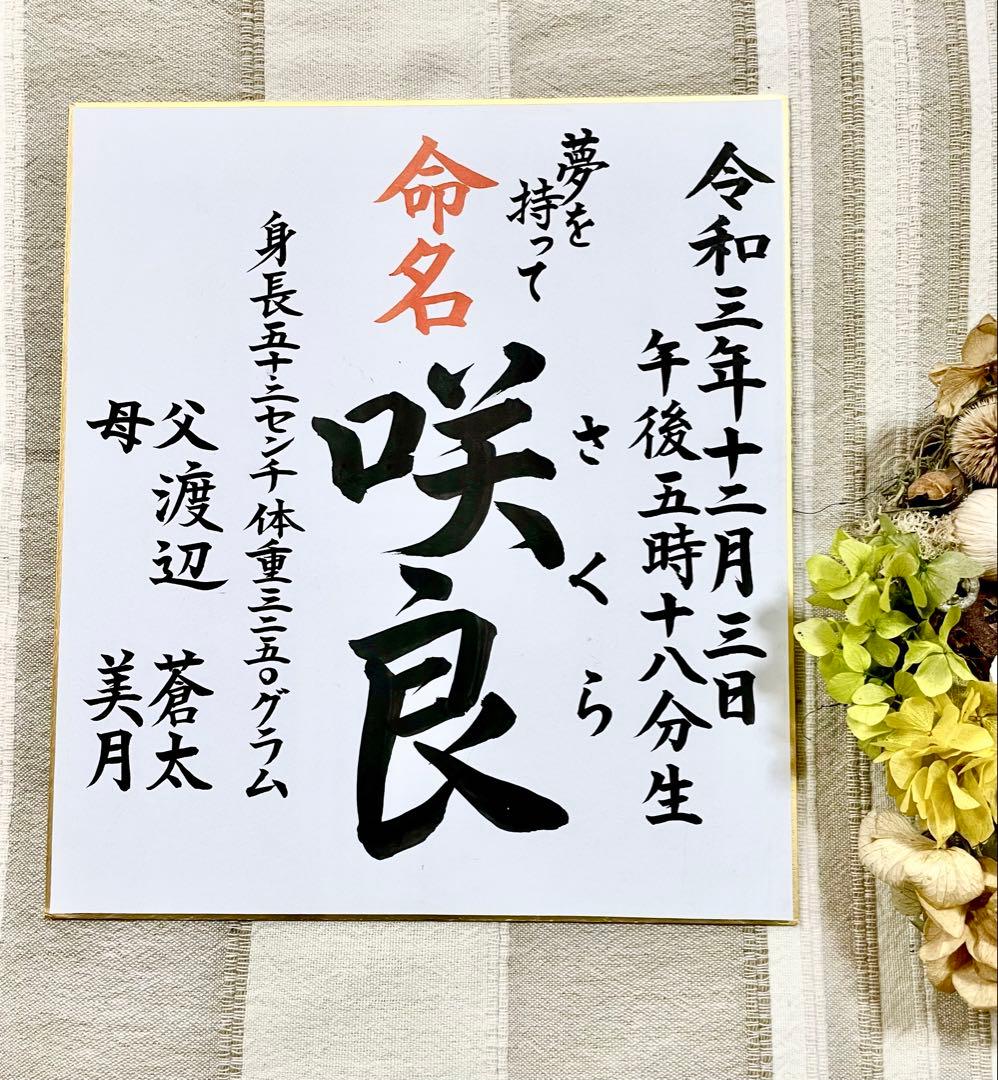 令和三年十二月三日
午後五時十八分生
夢を
持って
命名 咲良
さくら
身長五十三センチ 体重三二五〇グラム
父 渡辺 蒼太
母 美月